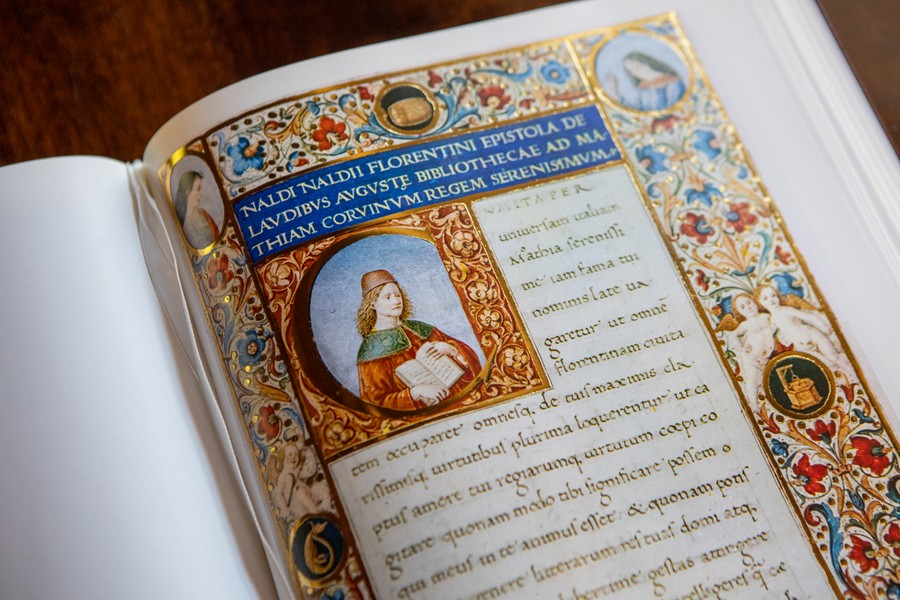 NALDI NALDII FLORENTINI EPISTOLA DE
LAVDIBVS AVGVSTE BIBLIOTHECAE AD MA-
THIAM CORVINVM REGEM SERENISSIMVM.
VSITA PER
universam italiam
Mathia serenissi
me iam fama tui
nominis late va
garetur ut omnē
florentinam civita
tem occuparet omnesq. de tuis maximis cla
rissimisq virtutibus plurima loquerentur ut ea
ptus amore tui regiarumq virtutum coepi co
gitare quonam modo tibi significare possem o
qui meus in te animus esset & quonam potis
litterarum res tuas domi atq.
gestas attingere